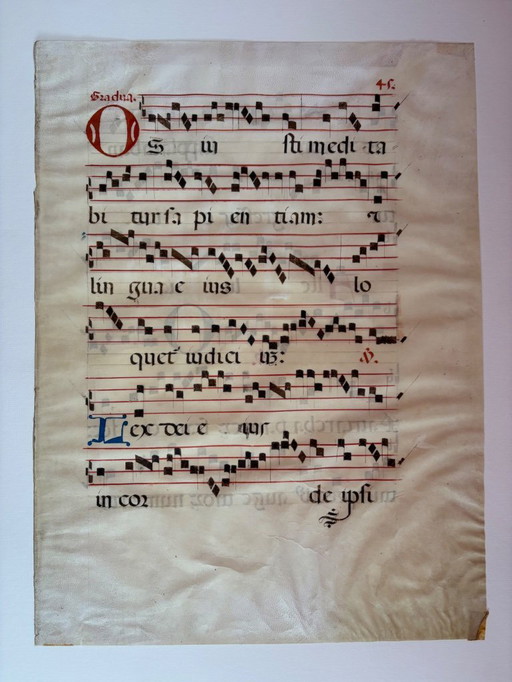 Gradua. 45.
OS iu sti medi ta
bi tur sa pi en tiam: et
lin gua e ius lo
quet iudici um:
℣.
Lex dei e ius
in cor de ipsi